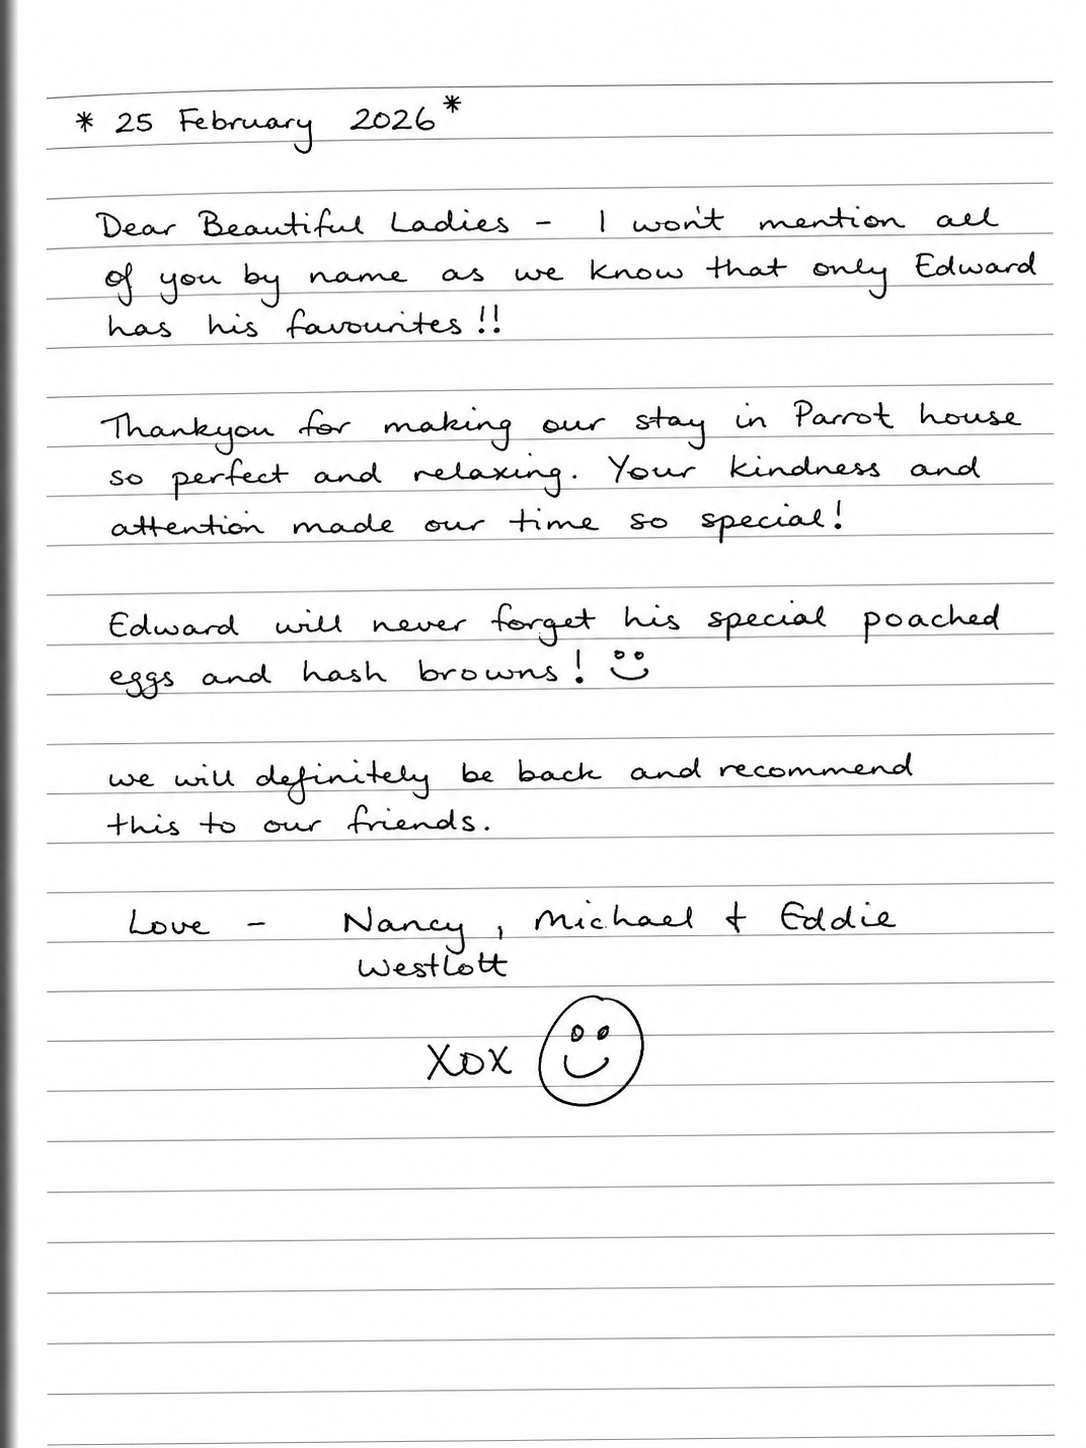 * 25 February 2026 *
Dear Beautiful Ladies - I won't mention all
of you by name as we know that only Edward
has his favourites!!
Thankyou for making our stay in Parrot house
so perfect and relaxing. Your kindness and
attention made our time so special!
Edward will never forget his special poached
eggs and hash browns!
we will definitely be back and recommend
this to our friends.
Love - Nancy, Michael + Eddie
Westlott
xox